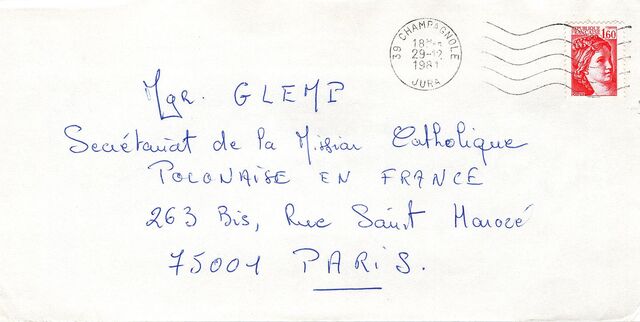 39 CHAMPAGNOLE
29-12
1981
JURA
1,60
Mgr. GLEMP
Secrétariat de la Mission Catholique
POLONAISE EN FRANCE
263 Bis, Rue Saint Honoré
75001 PARIS.